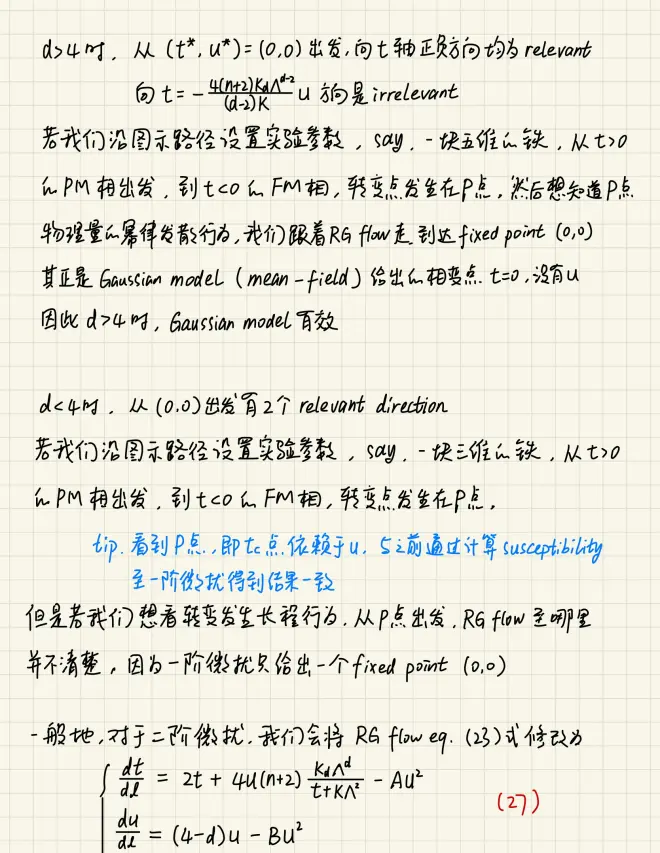 d>4时，从 (t*, u*) = (0,0) 出发，向t轴正负方向均为 relevant
向 t = - \frac{4(n+2)K_dΛ^{d-2}}{(d-2)K} u 方向是 irrelevant
若我们沿图示路径设置实验参数，say，一块五维的铁，从 t>0
的 PM 相出发，到 t<0 的 FM 相，转变点发生在P点，然后想知道P点
物理量的幂律发散行为，我们跟着RG flow走到达 fixed point (0,0)
其正是 Gaussian model (mean-field) 给出的相变点 t=0，没有u
因此 d>4时，Gaussian model 有效
d<4时，从 (0,0) 出发有2个 relevant direction
若我们沿图示路径设置实验参数，say，一块三维的铁，从 t>0
的 PM 相出发，到 t<0 的 FM 相，转变点发生在P点，
tip. 看到P点，即 t_c 点依赖于u，与之前通过计算 susceptibility
至一阶微扰得到结果一致
但是若我们想看转变发生长程行为，从P点出发，RG flow 至哪里
并不清楚，因为一阶微扰只给出一个 fixed point (0,0)
一般地，对于二阶微扰，我们会将 RG flow eq. (23)式修改为
\frac{dt}{dl} = 2t + 4u(n+2) \frac{K_dΛ^d}{t+KΛ^2} - Au^2
(27)
\frac{du}{dl} = (4-d)u - Bu^2